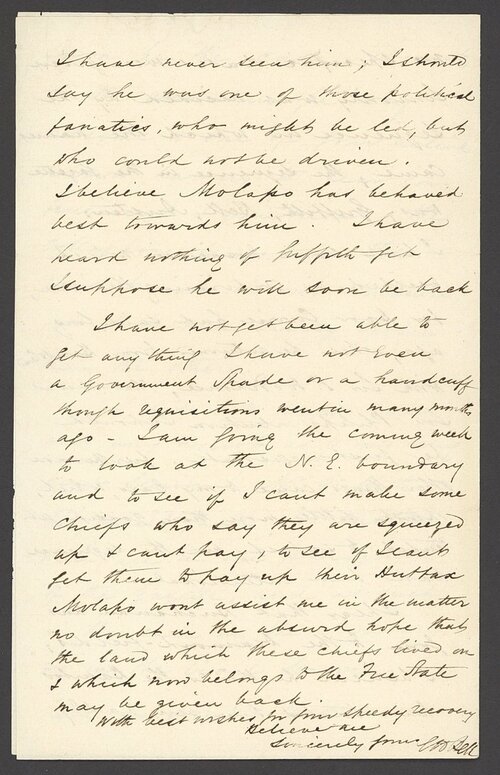 I have never seen him; I should
say he was one of those political
fanatics, who might be led, but
who could not be driven.
I believe Molapo has behaved
best towards him. I have
heard nothing of Griffith yet
I suppose he will soon be back
I have not yet been able to
get any thing I have not even
a Government Spade or a handcuff
though requisitions went in many months
ago - I am going the coming week
to look at the N. E. boundary
and to see if I cant make some
Chiefs who say they are squeezed
up & cant pay, to see if I cant
get them to pay up their Huttax
Molapo wont assist me in the matter
no doubt in the absurd hope that
the land which these chiefs lived on
& which now belongs to the Free State
may be given back.
With best wishes for your speedy recovery
Believe me
Sincerely yours Bell